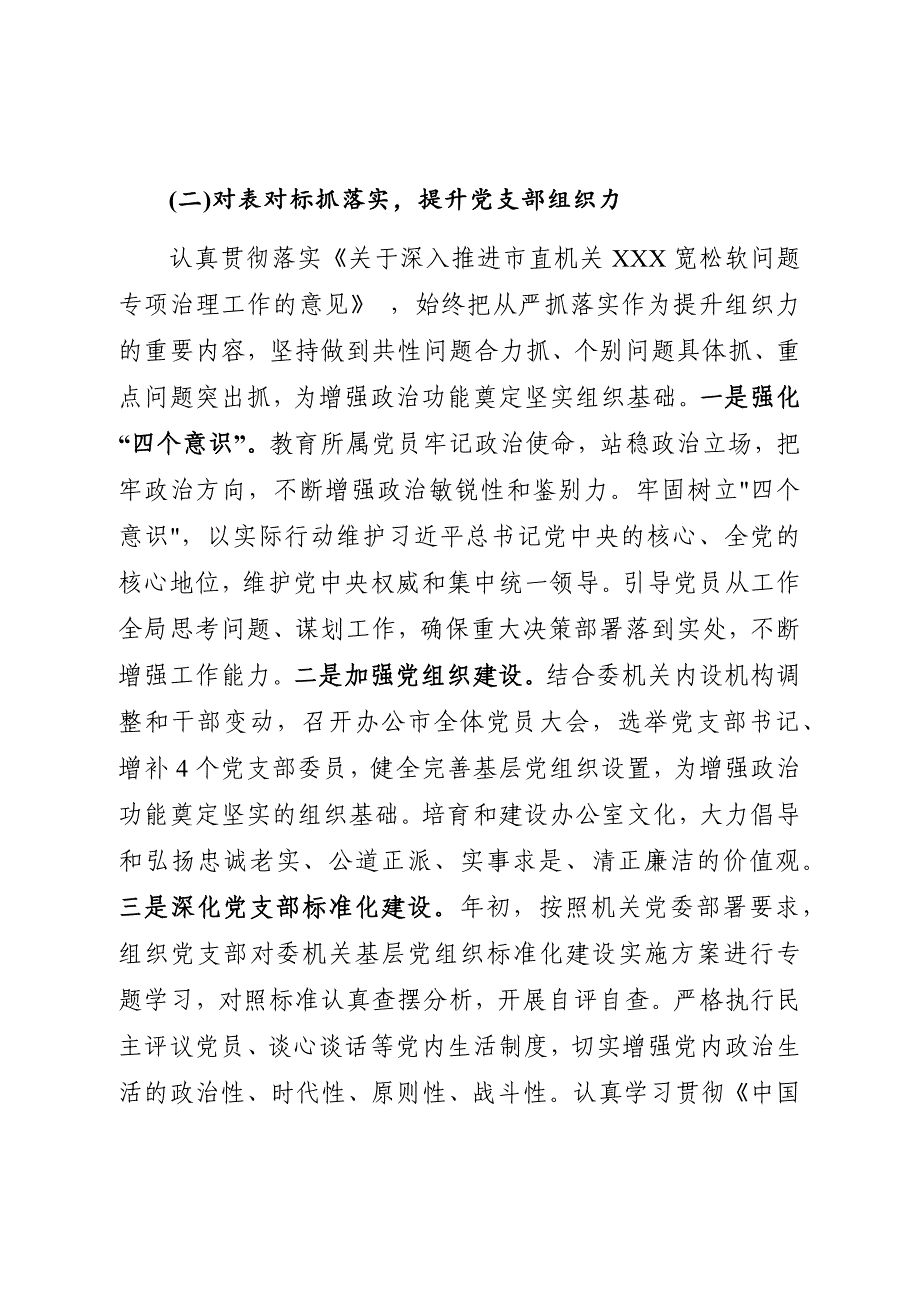 (二)对表对标抓落实，提升党支部组织力
认真贯彻落实《关于深入推进市直机关 XXX 宽松软问题
专项治理工作的意见》 ，始终把从严抓落实作为提升组织力
的重要内容，坚持做到共性问题合力抓、个别问题具体抓、重
点问题突出抓，为增强政治功能奠定坚实组织基础。一是强化
“四个意识”。教育所属党员牢记政治使命，站稳政治立场，把
牢政治方向，不断增强政治敏锐性和鉴别力。牢固树立"四个
意识"，以实际行动维护习近平总书记党中央的核心、全党的
核心地位，维护党中央权威和集中统一领导。引导党员从工作
全局思考问题、谋划工作，确保重大决策部署落到实处，不断
增强工作能力。二是加强党组织建设。结合委机关内设机构调
整和干部变动，召开办公市全体党员大会，选举党支部书记、
增补 4 个党支部委员，健全完善基层党组织设置，为增强政治
功能奠定坚实的组织基础。培育和建设办公室文化，大力倡导
和弘扬忠诚老实、公道正派、实事求是、清正廉洁的价值观。
三是深化党支部标准化建设。年初，按照机关党委部署要求，
组织党支部对委机关基层党组织标准化建设实施方案进行专
题学习，对照标准认真查摆分析，开展自评自查。严格执行民
主评议党员、谈心谈话等党内生活制度，切实增强党内政治生
活的政治性、时代性、原则性、战斗性。认真学习贯彻《中国